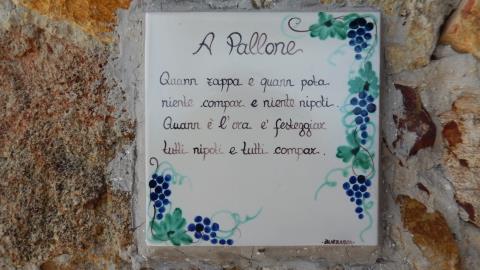 A Pallone
Quann zappa e quann pota
niente compar e niente nipoti.
Quann è l'ora e' festeggiar
tutti nipoti e tutti compar.